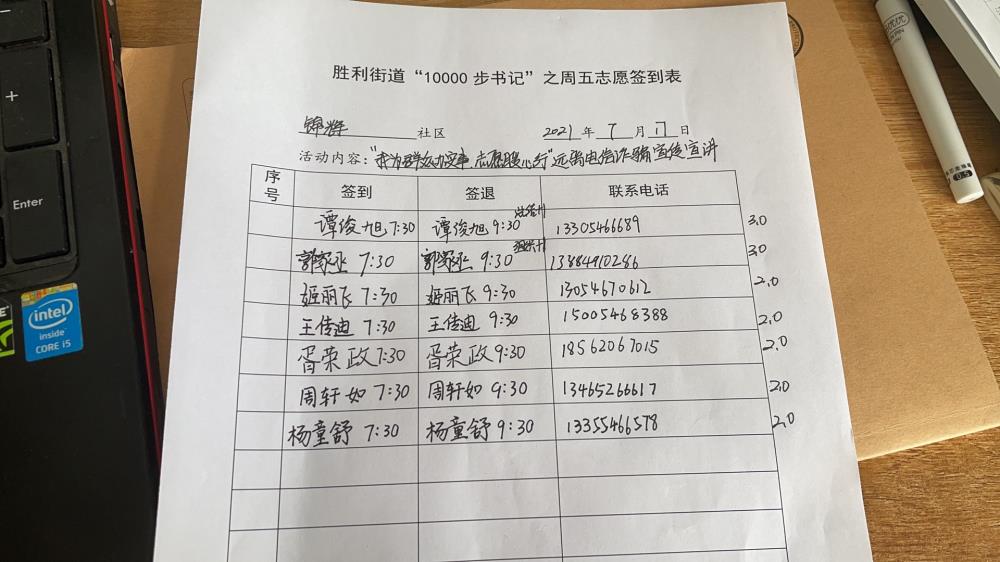 胜利街道“10000步书记”之周五志愿签到表
锦辉 社区 2021年7月17日
活动内容：“我为群众办实事 志愿暖心行”远离电信诈骗宣传宣讲
序号 签到 签退 联系电话
谭俊旭 7:30 谭俊旭 9:30 13305466689 3.0
郭家丞 7:30 郭家丞 9:30 13884910286 3.0
姬丽飞 7:30 姬丽飞 9:30 13054670612 2.0
王传迪 7:30 王传迪 9:30 15005468388 2.0
胥荣政 7:30 胥荣政 9:30 18562067015 2.0
周轩如 7:30 周轩如 9:30 13465266617 2.0
杨童舒 7:30 杨童舒 9:30 13355466578 2.0
+
Enter
intel
inside
CORE i5
0.5